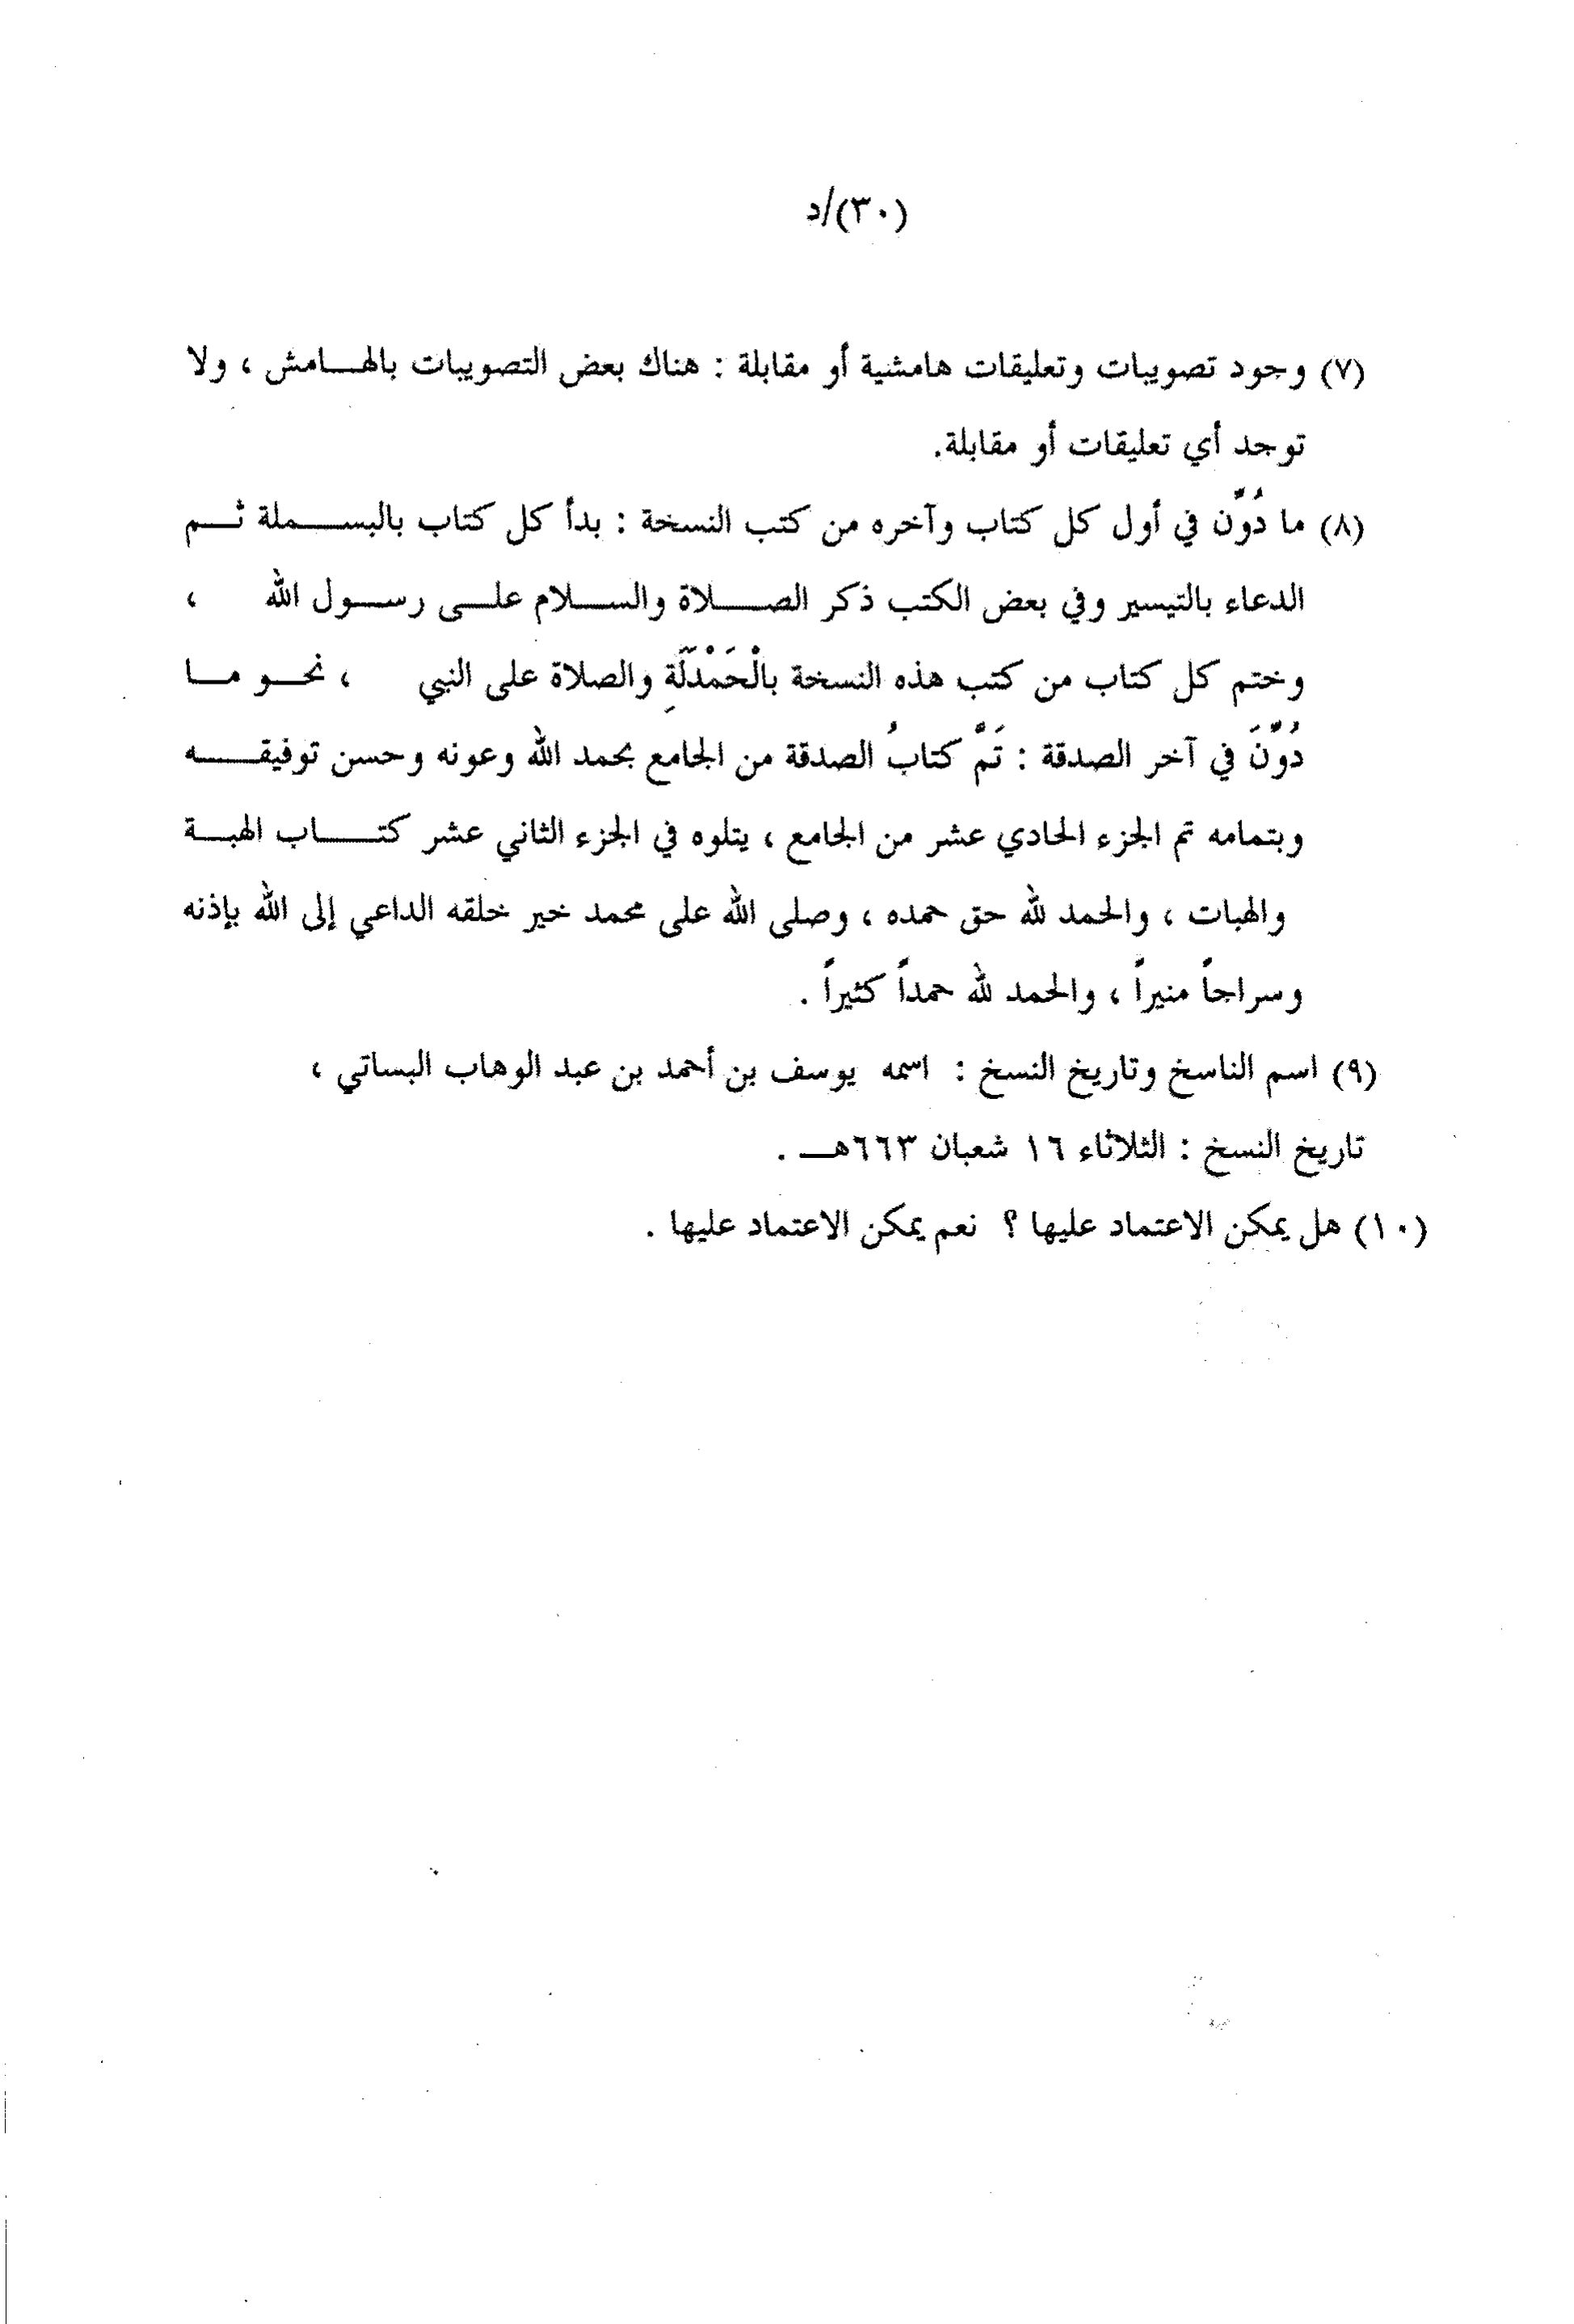 (٣٠)/د
(٧) وجود تصويبات وتعليقات هامشية أو مقابلة : هناك بعض التصويبات بالهـامش ، ولا
توجد أي تعليقات أو مقابلة.
(٨) ما دُوِّن في أول كل كتاب وآخره من كتب النسخة : بدأ كل كتاب بالبســملة ثـم
الدعاء بالتيسير وفي بعض الكتب ذكر الصــلاة والســلام علـى رسـول الله ،
وختم كل كتاب من كتب هذه النسخة بالْحَمْدَلَةِ والصلاة على النبي ، نحـو مـا
دُوِّنَ في آخر الصدقة : تَمَّ كتابُ الصدقة من الجامع بحمد الله وعونه وحسن توفيقــه
وبتمامه تم الجزء الحادي عشر من الجامع ، يتلوه في الجزء الثاني عشر كتــاب الهبـة
والهبات ، والحمد لله حق حمده ، وصلى الله على محمد خير خلقه الداعي إلى الله بإذنه
وسراجاً منيراً ، والحمد لله حمداً كثيراً .
(٩) اسم الناسخ وتاريخ النسخ : اسمه يوسف بن أحمد بن عبد الوهاب البساتي ،
تاريخ النسخ : الثلاثاء ١٦ شعبان ٦٦٣هـ .
(١٠) هل يمكن الاعتماد عليها ؟ نعم يمكن الاعتماد عليها .